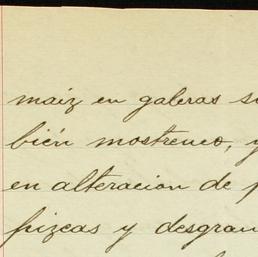 maiz en galeras
bién mostrenco,
en alteracion de
pizcas y desgran